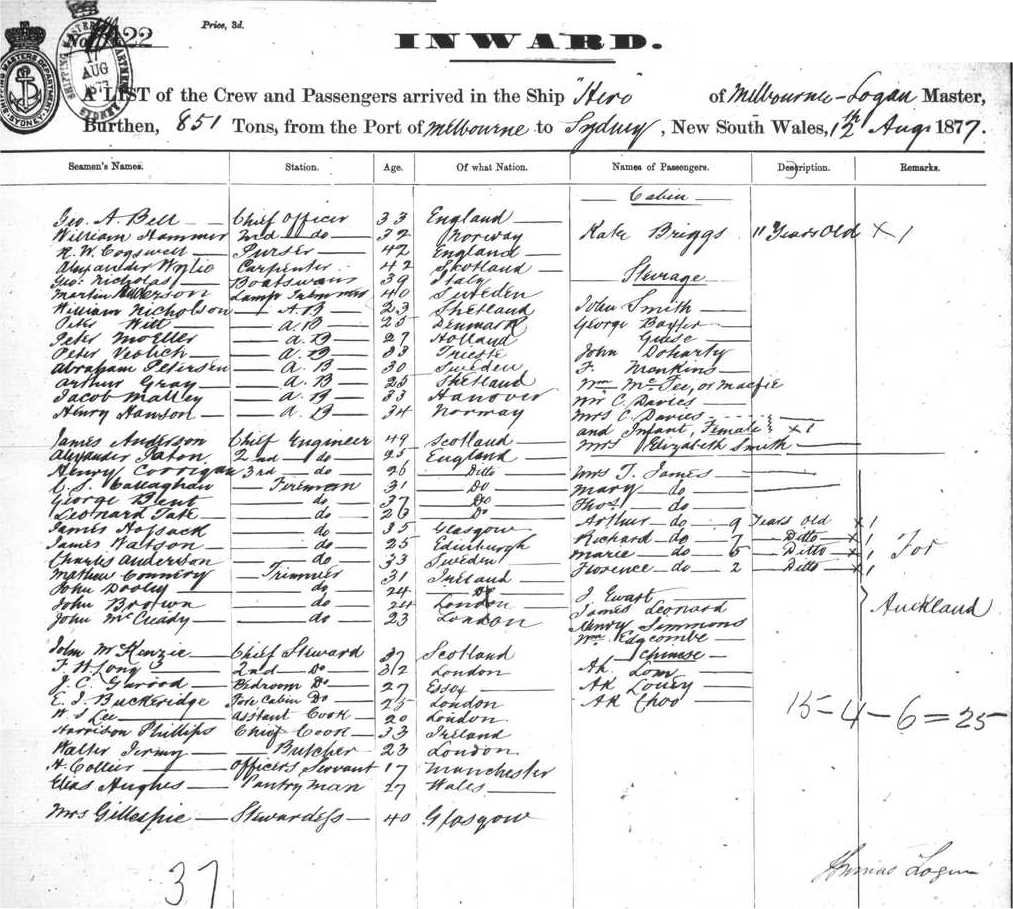 Price, 3d.
No 422
SHIPPING MASTER'S DEPARTMENT SYDNEY
17 AUG 1877
INWARD.
A LIST of the Crew and Passengers arrived in the Ship "Hero" of Melbourne - Logan Master,
Burthen, 851 Tons, from the Port of Melbourne to Sydney, New South Wales, 12th Aug 1877.
Seamen's Names. Station. Age. Of what Nation. Names of Passengers. Description. Remarks.
Cabin
Geo. A. Bell Chief Officer 33 England
William Hammer 2nd do 32 Norway Kate Briggs 11 Years Old x 1
H. W. Cogswell Purser 42 England
Alexander Wylie Carpenter 42 Skotland Steerage
Geo: Nicholas Boatswan 39 Italy
Martin Anderson Lamp Tremmer 40 Sweden John Smith
William Nicholson A.B 23 Shetland George Baxter
Peter Witt A.B 25 Denmark Guise
Peter Moeller A.B 27 Holland John Doharty
Peter Veolich A.B 33 Trieste F. Mankins
Abraham Petersen A.B 30 Sweden Wm McFee, or Macfie
Arthur Gray A.B 25 Shetland Mr C. Davies
Jacob Malley A.B 33 Hanover Mrs C. Davies
Henry Hanson A.B 34 Norway and Infant, Female x 1
James Anderson Chief Engineer 49 Scotland Mrs Elizabeth Smith
Alexander Paton 2nd do 25 England
Henry Corrigan 3rd do 26 Ditto Mrs T. James
C. S. Callaghan Fireman 31 Do Mary do
George Bent do 37 Do Thos do
Leonard Tate do 26 Do Arthur do 9 Years Old x 1
James Hossack do 35 Glasgow Richard do 7 Ditto x 1
James Watson do 25 Edinburgh Marie do 5 Ditto x 1 For
Charles Anderson do 33 Sweden Florence do 2 Ditto x 1
Mathew Connery Trimmer 31 Ireland
John Dooley do 24 Do J Ewart
John Brown do 24 London James Leonard Auckland
John McCuady do 23 London Henry Simmons
Wm Edgcombe
John McKenzie Chief Steward 37 Scotland Chinese
F. W. Long 2nd Do 312 London Ah Low
J. C. Garood Bedroom Do 27 Essex Ah Louey
E. J. Buckeridge Fore Cabin Do 25 London Ah Choo 15 - 4 - 6 = 25
W. J Lee Asstant Cook 20 London
Harrison Phillips Chief Cook 33 Ireland
Walter Jermy Butcher 23 London
A. Collier Officers Servant 17 Manchester
Elias Hughes Pantry Man 27 Wales
Mrs Gillespie Stewardess 40 Glasgow
37
Thomas Logan